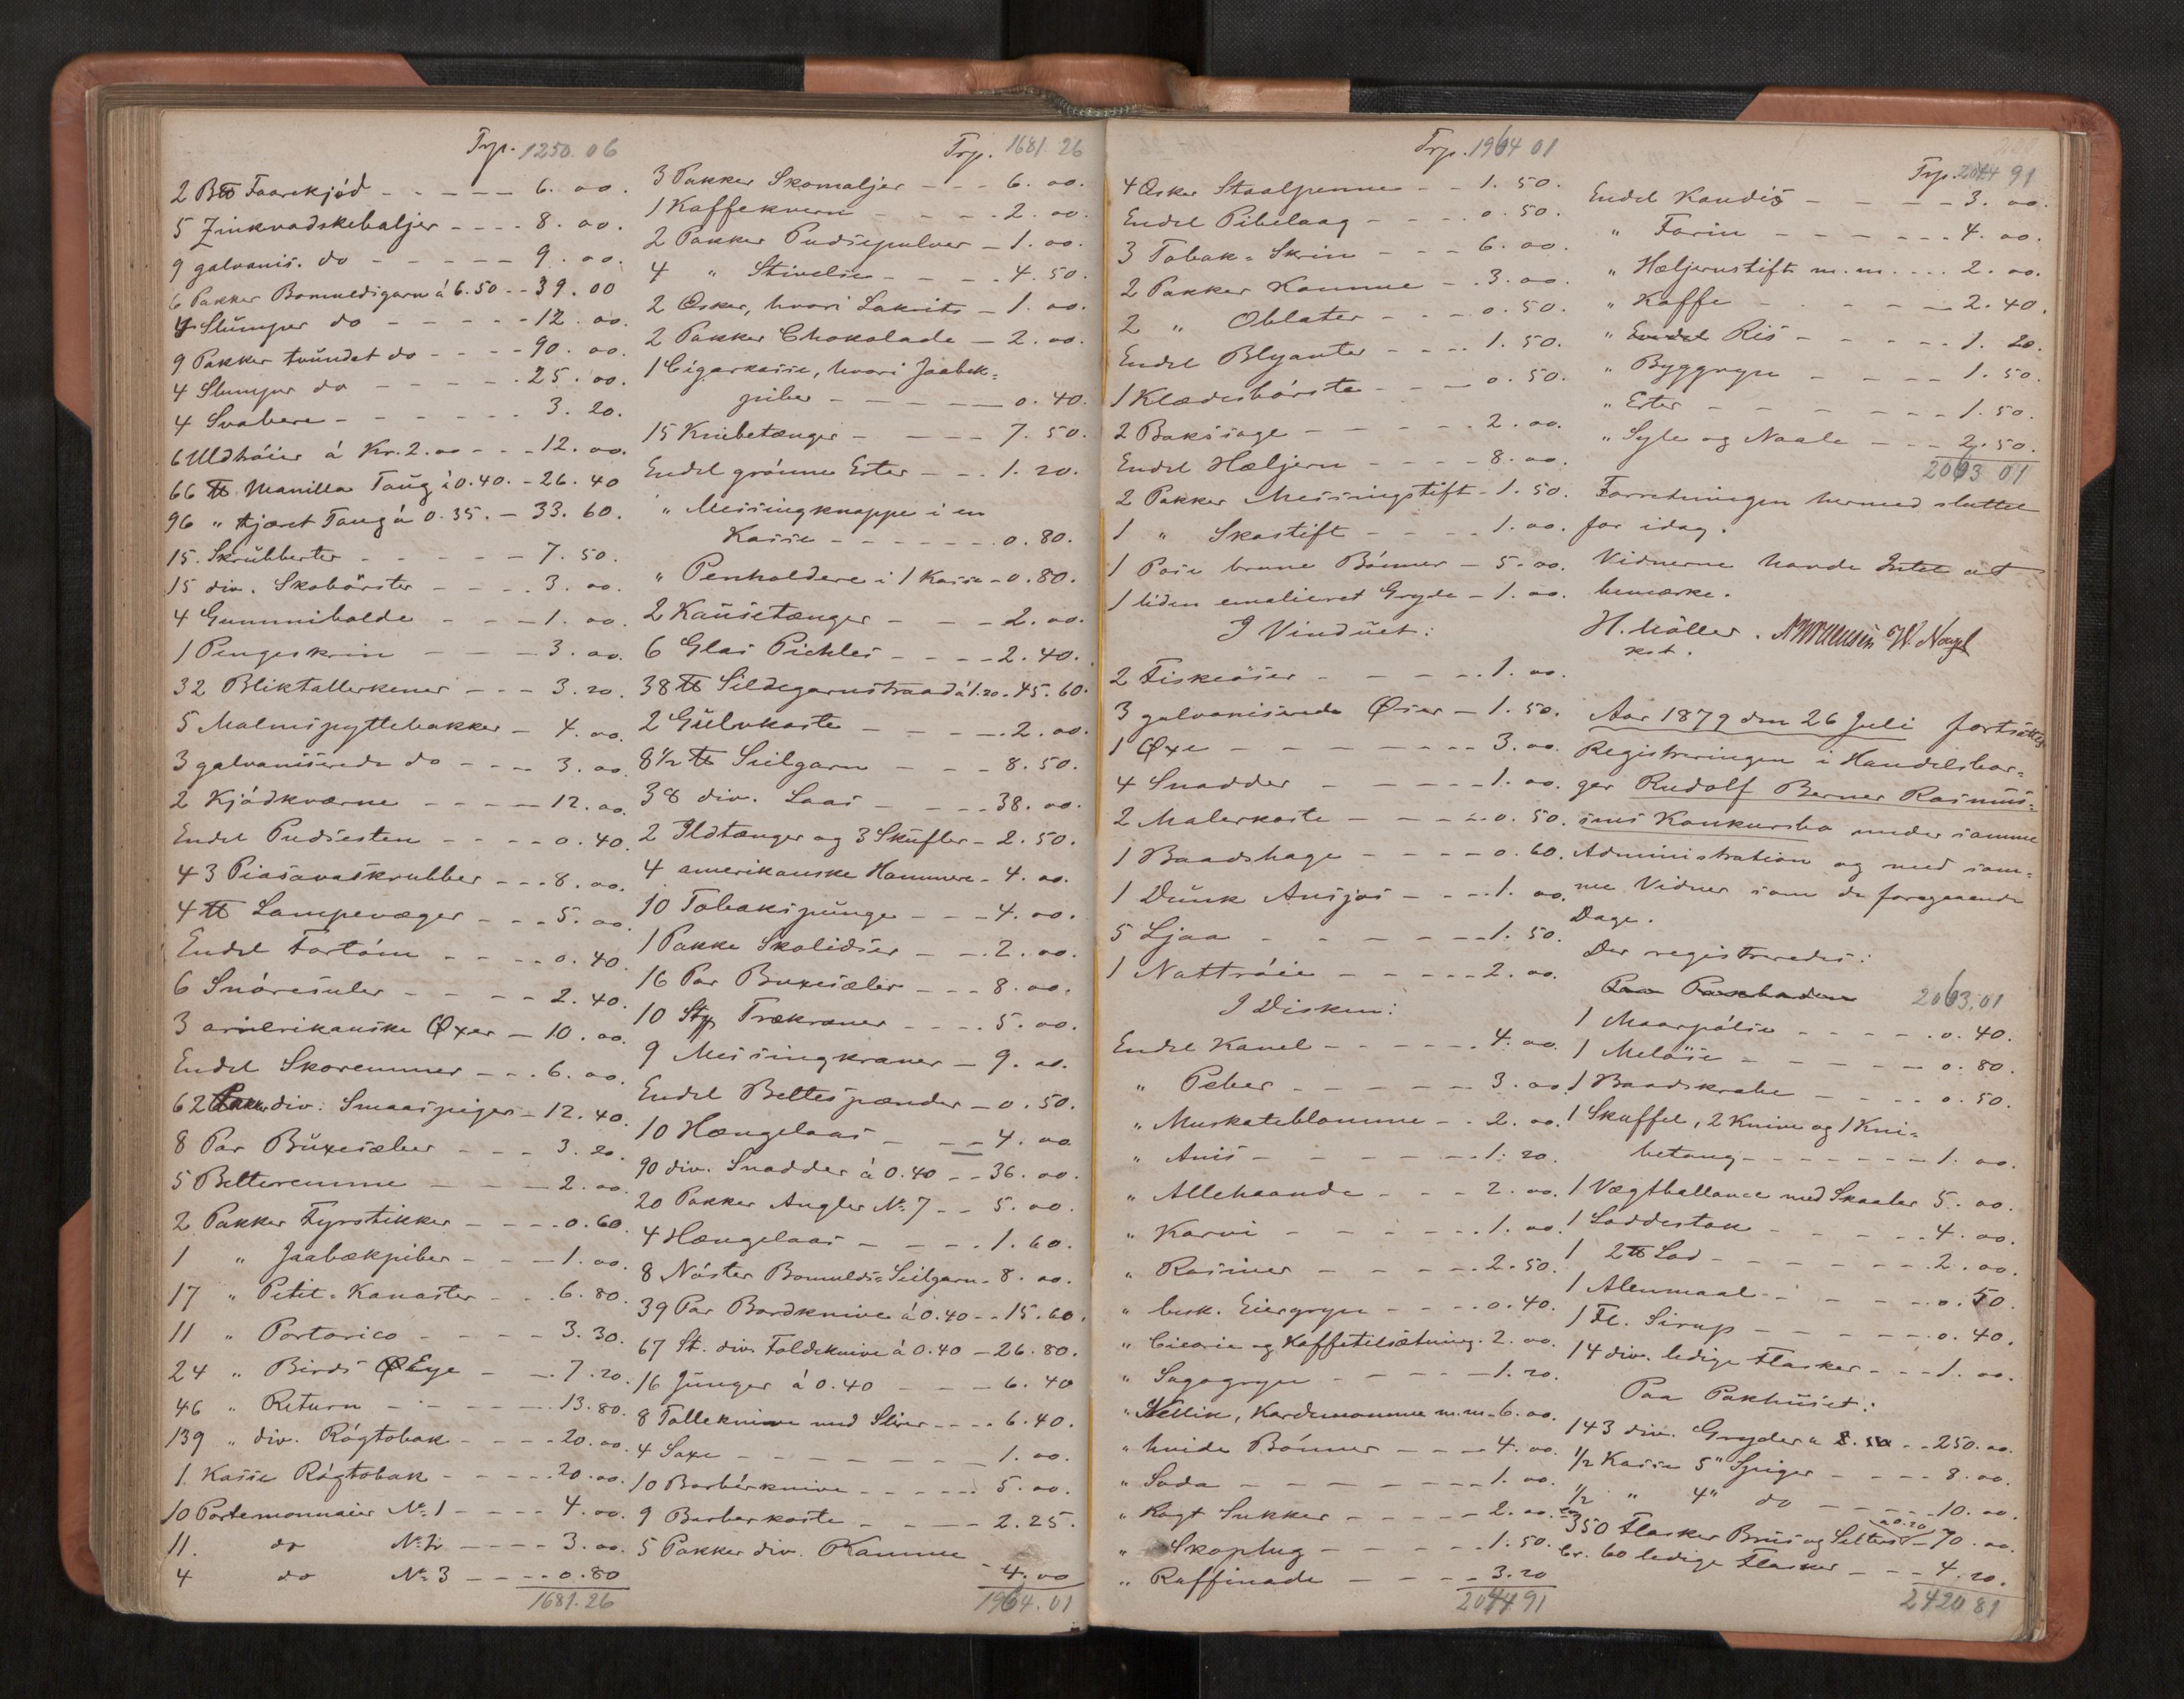 Trp. 1250.06
2 B℔ Faarekjød - - - - - 6. 00.
5 Zinkvadskebaljer - - - - 8. 00.
9 galvanis. do - - - - - 9. 00.
6 Pakker Bomuldsgarn á 6.50 - - 39. 00
4 Slumper do - - - - - 12. 00.
9 Pakker tvundet do - - - - 90. 00.
4 Slumper do - - - - - 25. 00.
4 Svabere - - - - - - 3. 20.
6 Uldtrøier á Kr. 2.00 - - - 12. 00.
66 ℔ Manilla Taug á 0.40. - 26. 40
96 " tjæret Taug á 0.35. - 33. 60.
15. Skrubberter - - - - - 7. 50.
15 div. Skobørster - - - - 3. 00.
4 Gummibolde - - - 1. 00.
1 Pengeskrin - - - - 3. 00.
32 Bliktallerkener - - - 3. 20.
5 Malmspyttebakker - 4. 00.
3 galvaniserede do - - - 3. 00
2 Kjødkværne - - - - 12. 00.
Endel Pudsesten - - - - 0. 40.
43 Piasavaskrubber - - - 8. 00.
4 ℔ Lampevæger - - - 5. 00
Endel Fortøm - - - - 0. 40
6 Snøresuler - - - - 2. 40.
3 amerikanske Øxer - 10. 00.
Endel Skoremmer - - - 6. 00
62 div: Smaaspiger - 12. 40.
8 Par Buxesæler - - - 3. 20.
5 Belteremme - - - - 2. 00
2 Pakker Fyrstikker - - - - 0. 60.
1 " Jaabækpiber - - - 1. 00.
17 " Petit-Kanaster - - - 6. 80.
11 " Portorico - - - - 3. 30.
24 " Birds Eye - - - 7. 20.
46 " Return - - - - - 13. 80.
139 " div. Røgtobak - - - - 20. 00.
1. Kasse Røgtobak - - - - 20. 00.
10 Portemonnaier No 1 - - - - 4. 00.
11. do No 2 - - - - 3. 00.
4 do No 3 - - - - 0. 80
1681. 26
Trp. 1681. 26
3 Pakker Skomaljer - - - 6. 00.
1 Kaffekvern - - - - - 2. 00.
2 Pakker Pudsepulver - 1. 00.
4 " Stivelse - - - - 4. 50.
2 Æsker, hvori Lakrits - 1. 00.
2 Pakker Chokolade - 2. 00.
1 Cigarkasse, hvori Jaabek=
piber - - - - - - 0. 40.
15 Knibetænger - - - - - 7. 50.
Endel grønne Erter - - - 1. 20.
" Messingknappe i en
Kasse - - - - - - 0. 80.
" Penholdere i 1 Kasse - 0. 80.
2 Kausetænger - - - 2. 00.
6 Glas Pickles - - - - 2. 40.
38 ℔ Sildegarnstraad á 1.20. 45. 60.
2 Gulvkoste - - - - - 2. 00.
8 1/2 ℔ Seilgarn - - - 8. 50.
38 div. Laas - - - - 38. 00.
2 Ildtænger og 3 Skufler - 2. 50.
4 amerikanske Hammere - 4. 00.
10 Tobakspunge - - - 4. 00.
1 Pakke Skolidser - - - 2. 00.
16 Par Buxesæler - - - 8. 00.
10 Trækraner - - - - 5. 00.
9 Messingkraner - 9. 00.
Endel Beltespænder - 0. 50.
10 Hængelaas - - - 4. 00
90 div. Snadder á 0.40 - - 36. 00.
20 Pakker Angler No 7 - - 5. 00.
4 Hængelaas - - - - 1. 60.
8 Nøster Bomulds=Seilgarn - 8. 00.
39 Par Bordknive á 0.40 - - 15. 60.
67 St. div. Foldeknive á 0.40 - 26. 80.
16 Junger á 0.40 - - - - 6. 40
8 Tolleknive med Slirer - - - - 6. 40.
4 Saxe - - - - - - - 1. 00.
10 Barbérknive - - - - - 5. 00.
9 Barberkoste - - - - - 2. 25.
5 Pakker div. Kamme
4. 00
1964. 01
Trp. 1964 01
4 Æsker Staalpenne - - 1. 50.
Endel Pibelaag - - - - 0. 50.
3 Tobak=Skrin - - - 6. 00.
2 Pakker Kamme - - 3. 00.
2 " Oblater - - - 0. 50.
Endel Blyanter - - - - 1. 50.
1 Klædesbørste - - - - 0. 50.
2 Baksage - - - - - 2. 00.
Endel Hæljern - - - - 8. 00.
2 Pakker Messingstift - 1. 50.
1 " Skostift - - - - 1. 00.
1 Pose brune Bønner - 5. 00.
1 liden emalieret Gryde - 1. 00.
I Vinduet:
2 Fiskeøser - - - - - 1. 00.
3 galvaniserede Øser - 1. 50.
1 Øxe - - - - - - - - 3. 00.
4 Snadder - - - - - 1. 00.
2 Malerkoste - - - - 0. 50.
1 Baadshage - - - - 0. 60.
1 Dunk Ansjos - - - 1. 00.
5 Ljaa - - - - - - 1. 50.
1 Nattrøie - - - - - 2. 00.
I Disken:
Endel Kanel - - - - - - 4. 00.
" Peber - - - - - - 3. 00
" Muskateblomme - - 2. 00.
" Anis - - - - - - 1. 20.
" Allehaande - - - 2. 00.
" Karvi - - - - - - 1. 00
" Rosiner - - - - - 2. 50.
" besk. Eiergryn - - - - 0. 40.
" Cicorie og Kaffetilsætning. 2. 00.
" Sagogryn - - - - - 1. 20.
" Nellik, Kardemomme m.m. 6. 00.
" hvide Bønner - - - 4. 00.
" Soda - - - - - - - 1. 00.
" Kogt Sukker - - - - - 2. 00.
" Skoplug - - - - - 1. 50.
" Raffinade - - - - - 3. 20
2044 91
Trp. 2044 91
Endel Kandis - - - - - 3. 00.
" Farin - - - - - - - 4. 00.
" Hæljernstift m. m. - - - 2. 00.
" Kaffe - - - - - 2. 40.
" Endel Ris - - - - - 1. 20.
" Byggryn - - - - 1. 50.
" Erter - - - - - - - 1. 50.
" Syle og Naale - - - 2. 50.
2063 01
Forretningen hermed sluttet
for idag.
Vidnerne havde Intet at
bemærke.
H. Møller. W. Nagel
kst.
Aar 1879 den 26 Juli fortsattes
Registreringen i Handelsbor=
ger Rudolf Berner Rasmus=
sens Konkursbo under samme
Administration og med sam=
me Vidner som de foregaaende
Dage.
Der registreredes:
Paa Pakboden 2063.01
1 Maarpølse - - - - - - 0. 40.
1 Meløse - - - - - - 0. 80.
1 Baadskrabe - - - - - 0. 50.
1 Skuffel, 2 Knive og 1 Kni=
betang - - - - - - - 1. 00.
1 Vægtballance med Skaaler 5. 00.
1 Loddestok - - - - - - 4. 00.
1 2 ℔ Lod - - - - - - - 2. 00.
1 Alenmaal - - - - - - 0. 50.
1 Fl. Sirup - - - - - - 0. 40.
14 div. ledige Flasker - - - 1. 00.
Paa Pakhuset:
143 div. Gryder - - 250. 00.
1/2 Kasse 5" Spiger - - - - 8. 00.
1/2 " 4" do - - - - 10. 00.
350 Flasker Brus og Selters á 0.20 - 70. 00.
Cr. 60 ledige Flasker - - - 4. 20.
2420 81